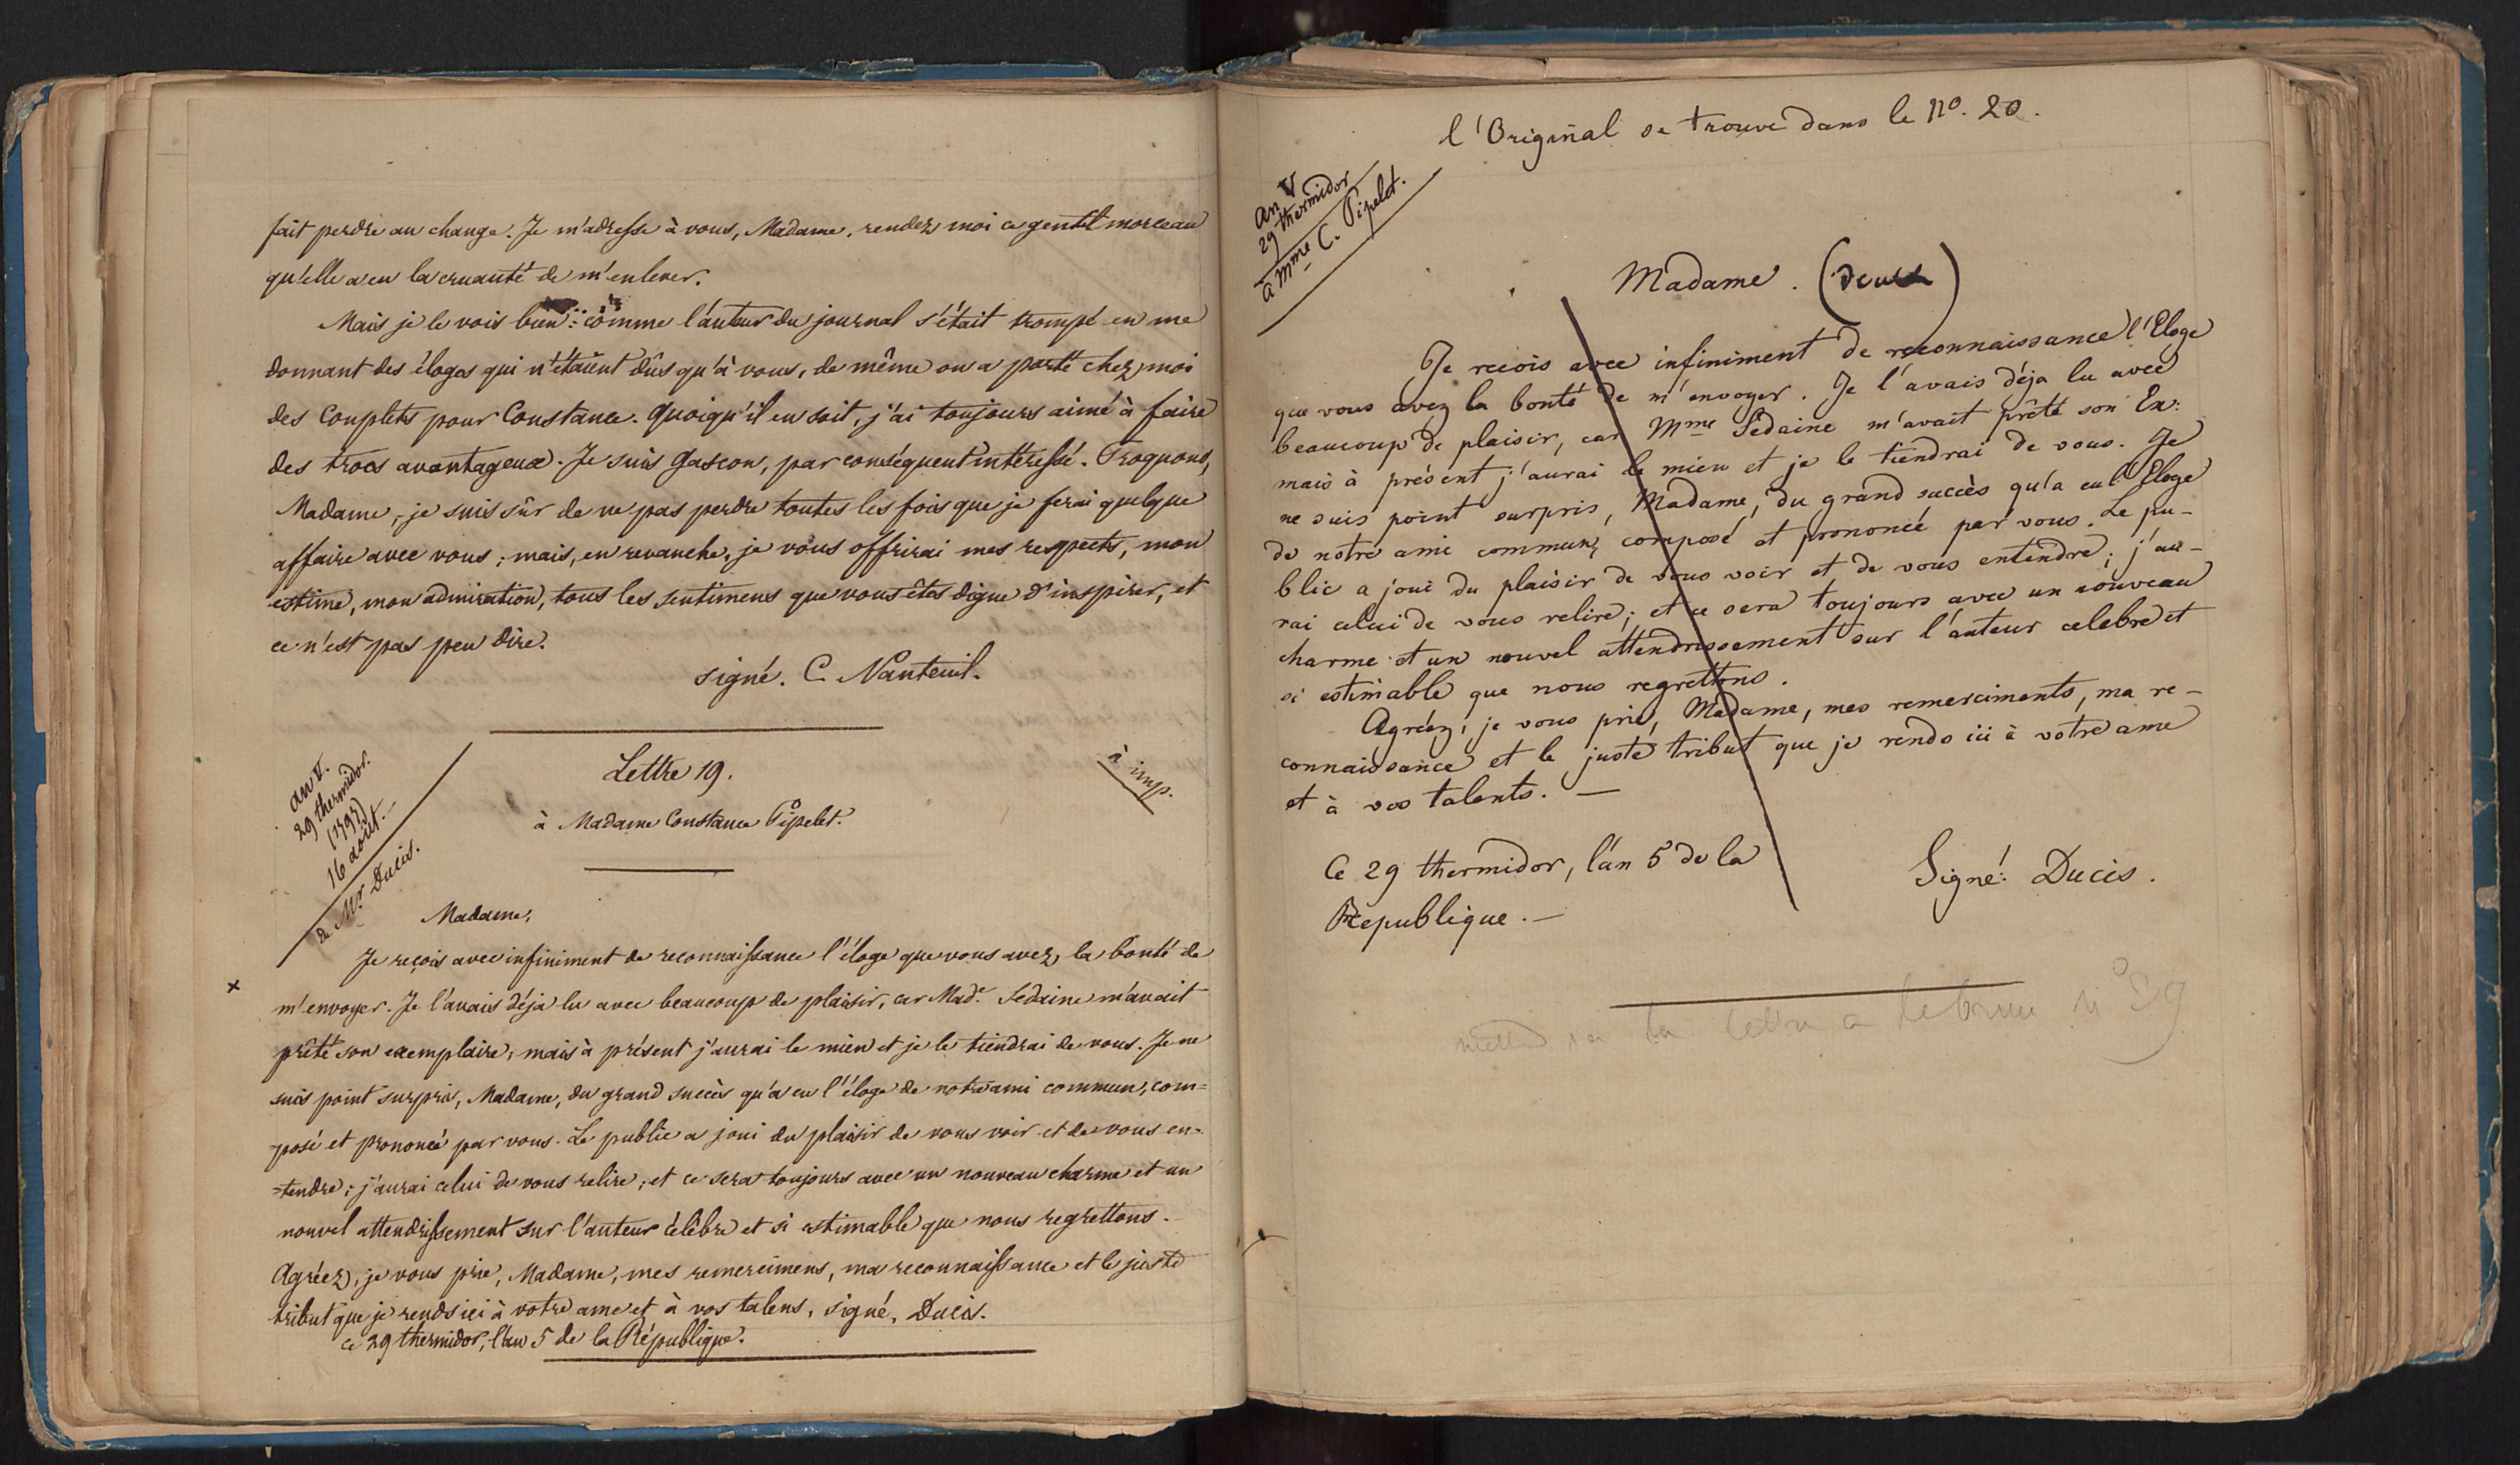 fait perdre au change. Je m'adresse à vous, Madame, rendez moi ce gentil morceau
qu'elle a eu la cruauté de m'enlever.
Mais je le vois bien : comme l'auteur du journal s'était trompé en me
donnant des éloges qui n'étaient dûs qu'à vous, de même on a porté chez moi
des Couplets pour Constance. Quoiqu'il en soit, j'ai toujours aimé à faire
des trocs avantageux. Je suis Gascon, par conséquent intéressé. Troquons,
Madame, je suis sûr de ne pas perdre toutes les fois que je ferai quelque
affaire avec vous ; mais, en revanche, je vous offrirai mes respects, mon
estime, mon admiration, tous les sentimens que vous êtes digne d'inspirer, et
ce n'est pas peu dire.
signé. C. Nanteuil.
an V.
29 thermidor.
(1797)
16 août.
de Mr. Ducis.
Lettre 19.
à imp.
à Madame Constance Pipelet.
Madame,
Je reçois avec infiniment de reconnaissance l'éloge que vous avez la bonté de
x
m'envoyer. Je l'avais déja lu avec beaucoup de plaisir, car Made. Sedaine m'avait
prêté son exemplaire, mais à présent j'aurai le mien et je le tiendrai de vous. Je ne
suis point surpris, Madame, du grand succès qu'a eu l'éloge de notre ami commun, com=
posé et prononcé par vous. Le public a joui du plaisir de vous voir et de vous en=
=tendre ; j'aurai celui de vous relire, et ce sera toujours avec un nouveau charme et un
nouvel attendrissement sur l'auteur célèbre et si estimable que nous regrettons.
Agréez, je vous prie, Madame, mes remercimens, ma reconnaissance et le juste
tribut que je rends ici à votre ame et à vos talens, signé, Ducis.
ce 29 thermidor, l'an 5 de la République.
l'Original se trouve dans le No. 20.
an V
29 thermidor
à Mme C. Pipelet.
Madame.
Je recois avec infiniment de reconnaissance l'Eloge
que vous avez la bonté de m'envoyer. Je l'avais déja lu avec
beaucoup de plaisir, car Mme Sedaine m'avait prêté son Ex:
mais à présent j'aurai le mien et je le tiendrai de vous. Je
ne suis point surpris, Madame, du grand succès qu'a eu l'Eloge
de notre ami commun, composé et prononcé par vous. Le pu-
blic a joui du plaisir de vous voir et de vous entendre ; j'au-
rai celui de vous relire ; et ce sera toujours avec un nouveau
charme et un nouvel attendrissement sur l'auteur celebre et
si estimable que nous regrettons.
Agréez, je vous prie, Madame, mes remerciments, ma re-
connaissance et le juste tribut que je rends ici à votre ame
et à vos talents. —
Ce 29 thermidor, l'an 5 de la
Republique. —
Signé: Ducis.
la lettre a lebrun no 39